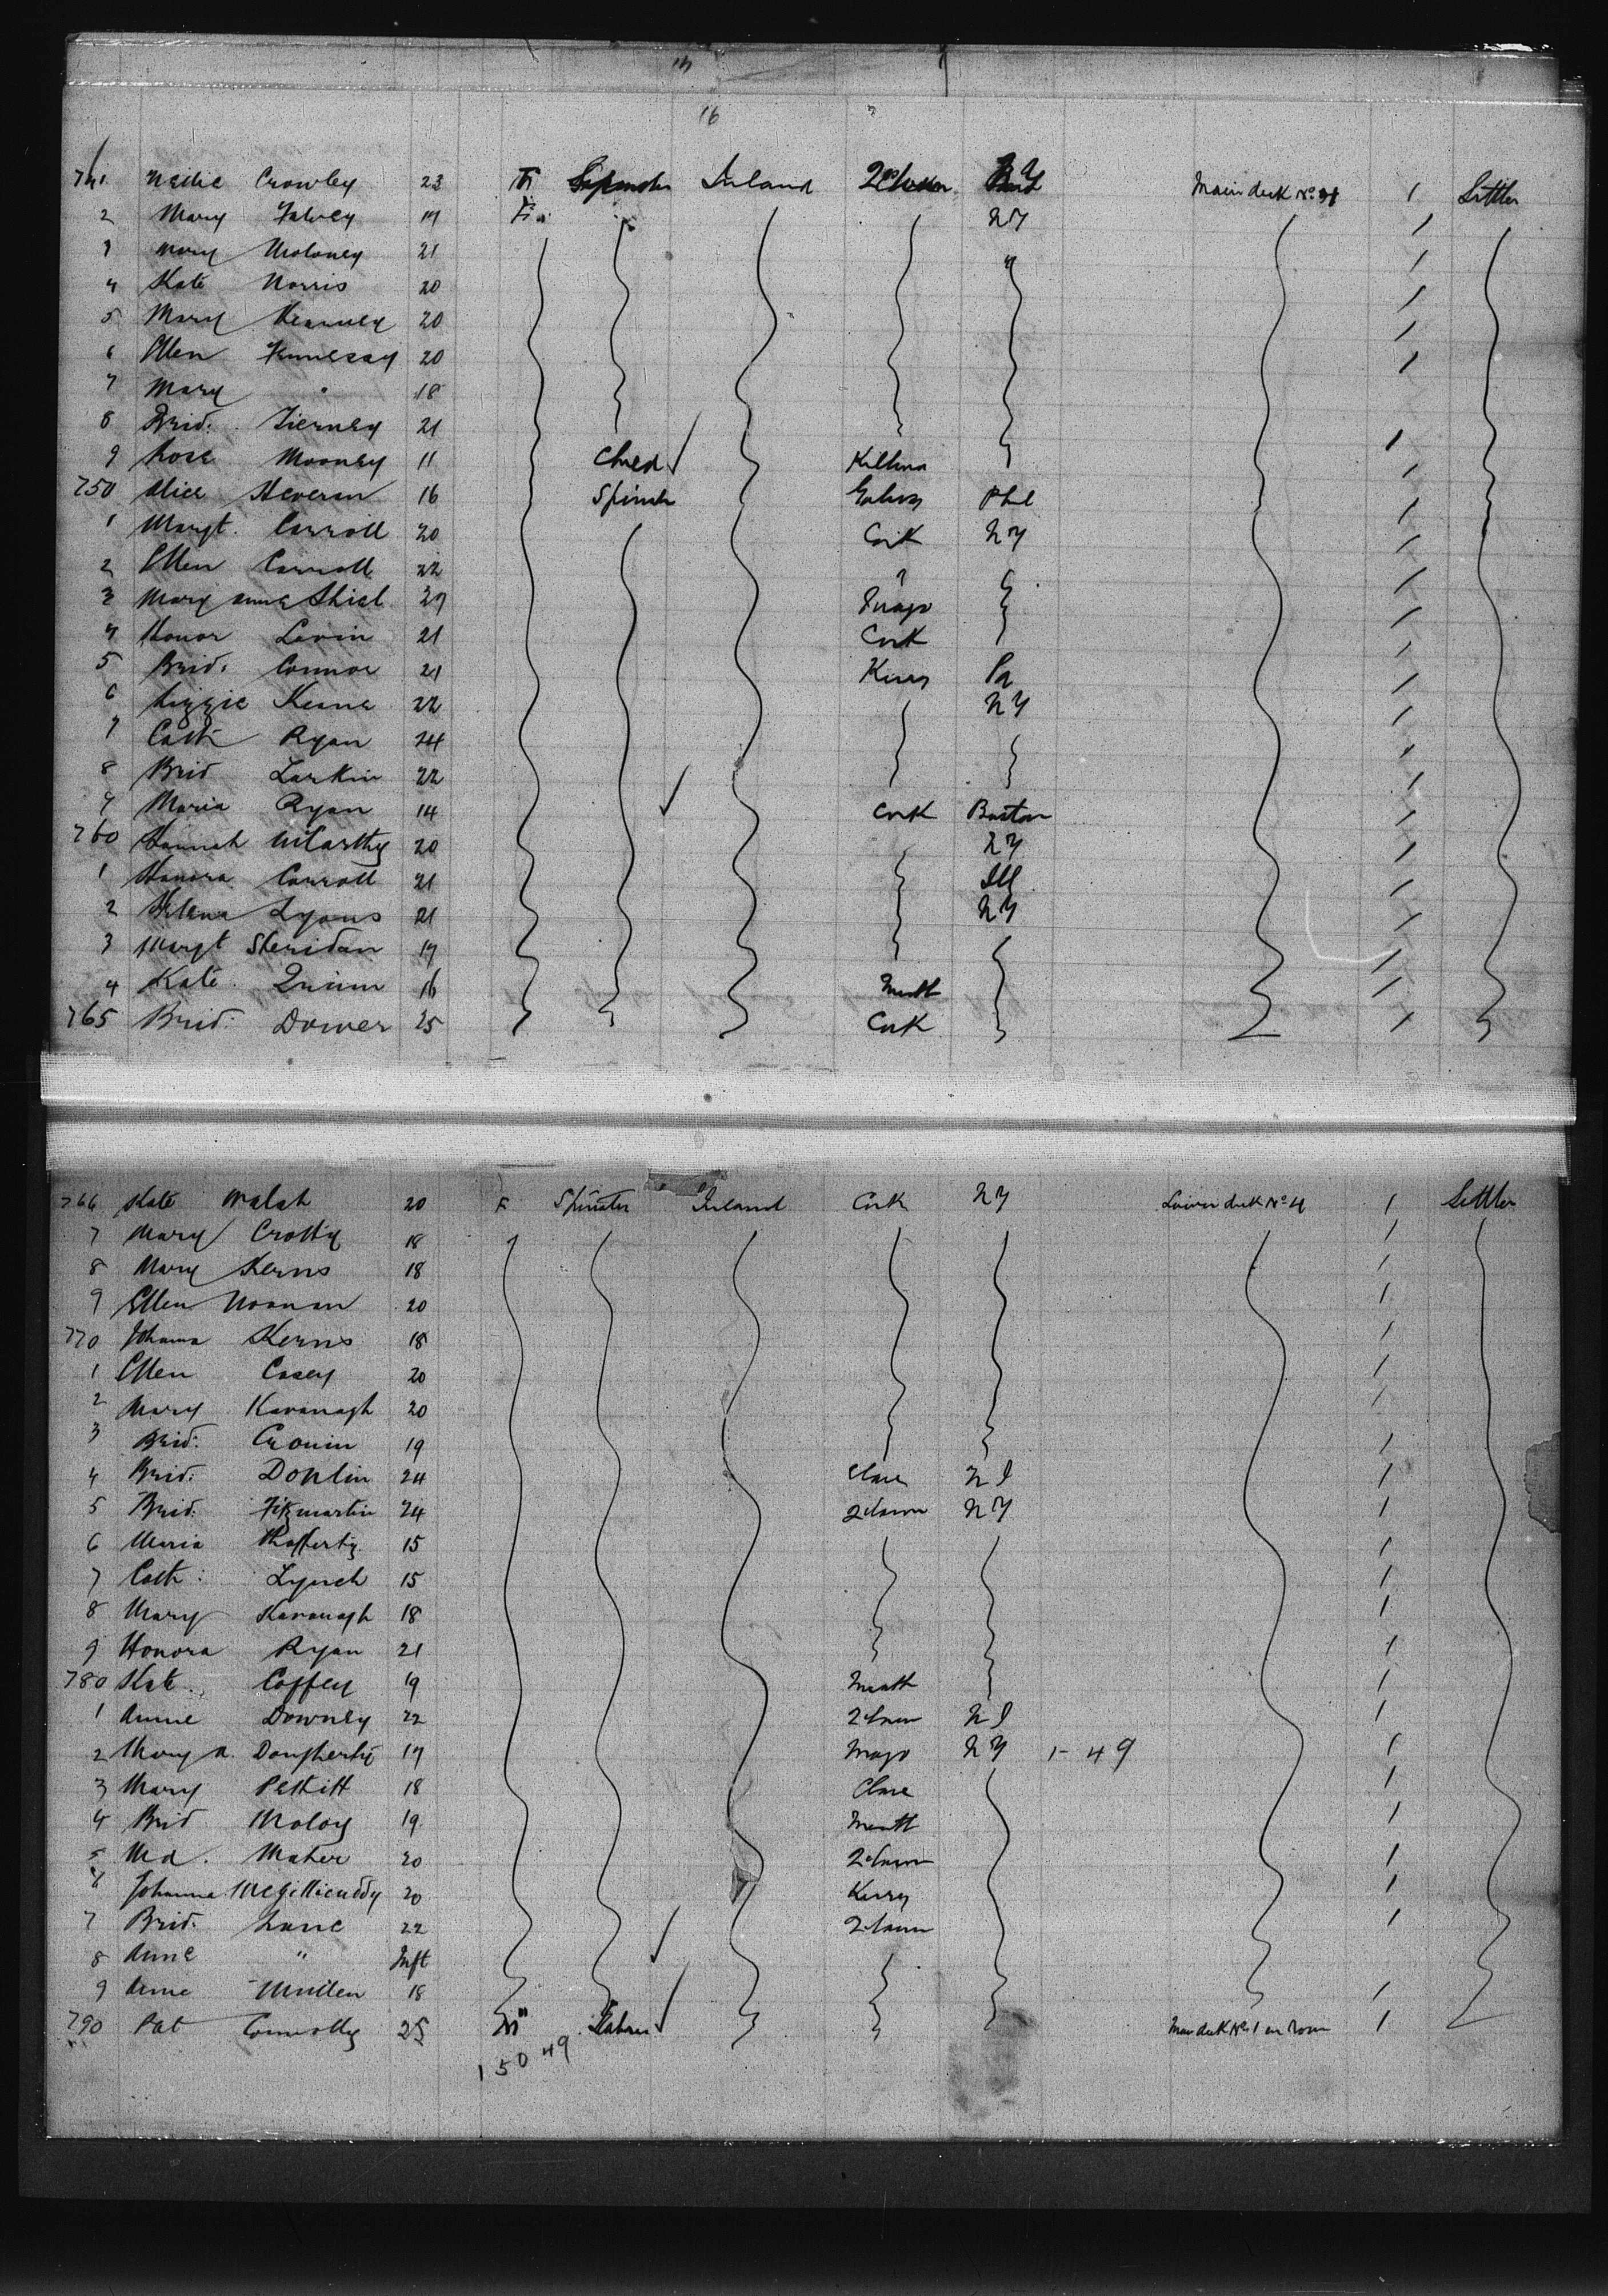 16
741 Nellie Crowley 23 F Spinster Ireland NY Main deck No 1 Settler
2 Mary Falvey 19 F NY 1
3 Mary Moloney 21 " 1
4 Kate Norris 20 1
5 Mary Kearney 20 1
6 Ellen Hennessy 20 1
7 Mary " 18
8 Brid. Tierney 21 1
9 Rose Mooney 11 Child 1
750 Alice Heveran 16 Spinst Galway Phil 1
1 Margt. Carroll 20 Cork NY 1
2 Ellen Carroll 22 " 1
3 Mary Anne Shiel 29 Mayo 1
4 Honor Lavin 21 Cork 1
5 Brid. Connor 21 Kerry Pa 1
6 Lizzie Keane 22 NY 1
7 Cath Ryan 24 1
8 Brid Larkin 22 1
9 Maria Ryan 14 Cork Boston 1
760 Hannah McCarthy 20 NY 1
1 Honora Carroll 21 Ill 1
2 Helena Lyons 21 NY 1
3 Margt Sheridan 19 1
4 Kate Quinn 16 Meath 1
765 Brid. Dower 25 Cork 1
766 Kate Walsh 20 F Spinster Ireland Cork NY Lower deck No 4 1 Settler
7 Mary Crotty 18 1
8 Mary Kerns 18 1
9 Ellen Noonan 20 1
770 Johanna Kerns 18 1
1 Ellen Casey 20 1
2 Mary Kavanagh 20 1
3 Brid. Cronin 19 1
4 Brid. Donlin 24 Clare NJ 1
5 Brid. Fitzmartin 24 NY 1
6 Maria Rafferty 15 1
7 Cath: Lynch 15 1
8 Mary Kavanagh 18 1
9 Honora Ryan 21 1
780 Kate Coffey 19 Meath 1
1 Annie Downey 22 NJ 1
2 Mary A. Dougherty 19 Mayo NY 1-49 1
3 Mary Pettitt 18 Clare 1
4 Brid Moloy 19 Meath 1
5 Md. Maher 20 1
6 Johanna McGillicuddy 20 Kerry 1
7 Brid. Lane 22 1
8 Anne " Inft
9 Anne Mullen 18 1
790 Pat Connolly 25 M Labrer Main deck No 1 1
1 50 49